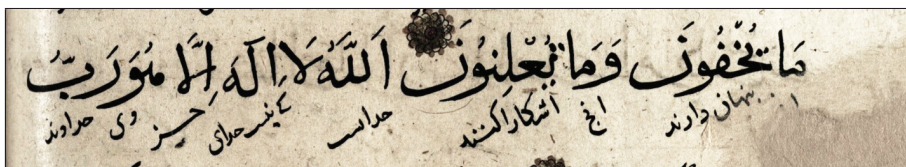 مَا تُخْفُونَ وَمَا تُعْلِنُونَ اَللَّهُ لَا اِلَهَ اِلَّا هُوَ رَبُّ
پنهان دارند انچ آشکارا کنند خداست کی نیست خدای جز وی خداوند